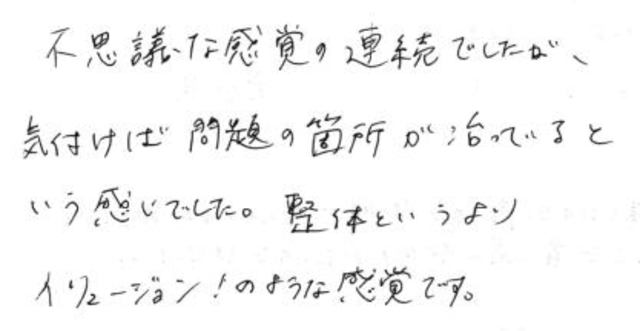 不思議な感覚の連続でしたが、
気付けば問題の箇所が治っていると
いう感じでした。整体というより
イリュージョン！のような感覚です。